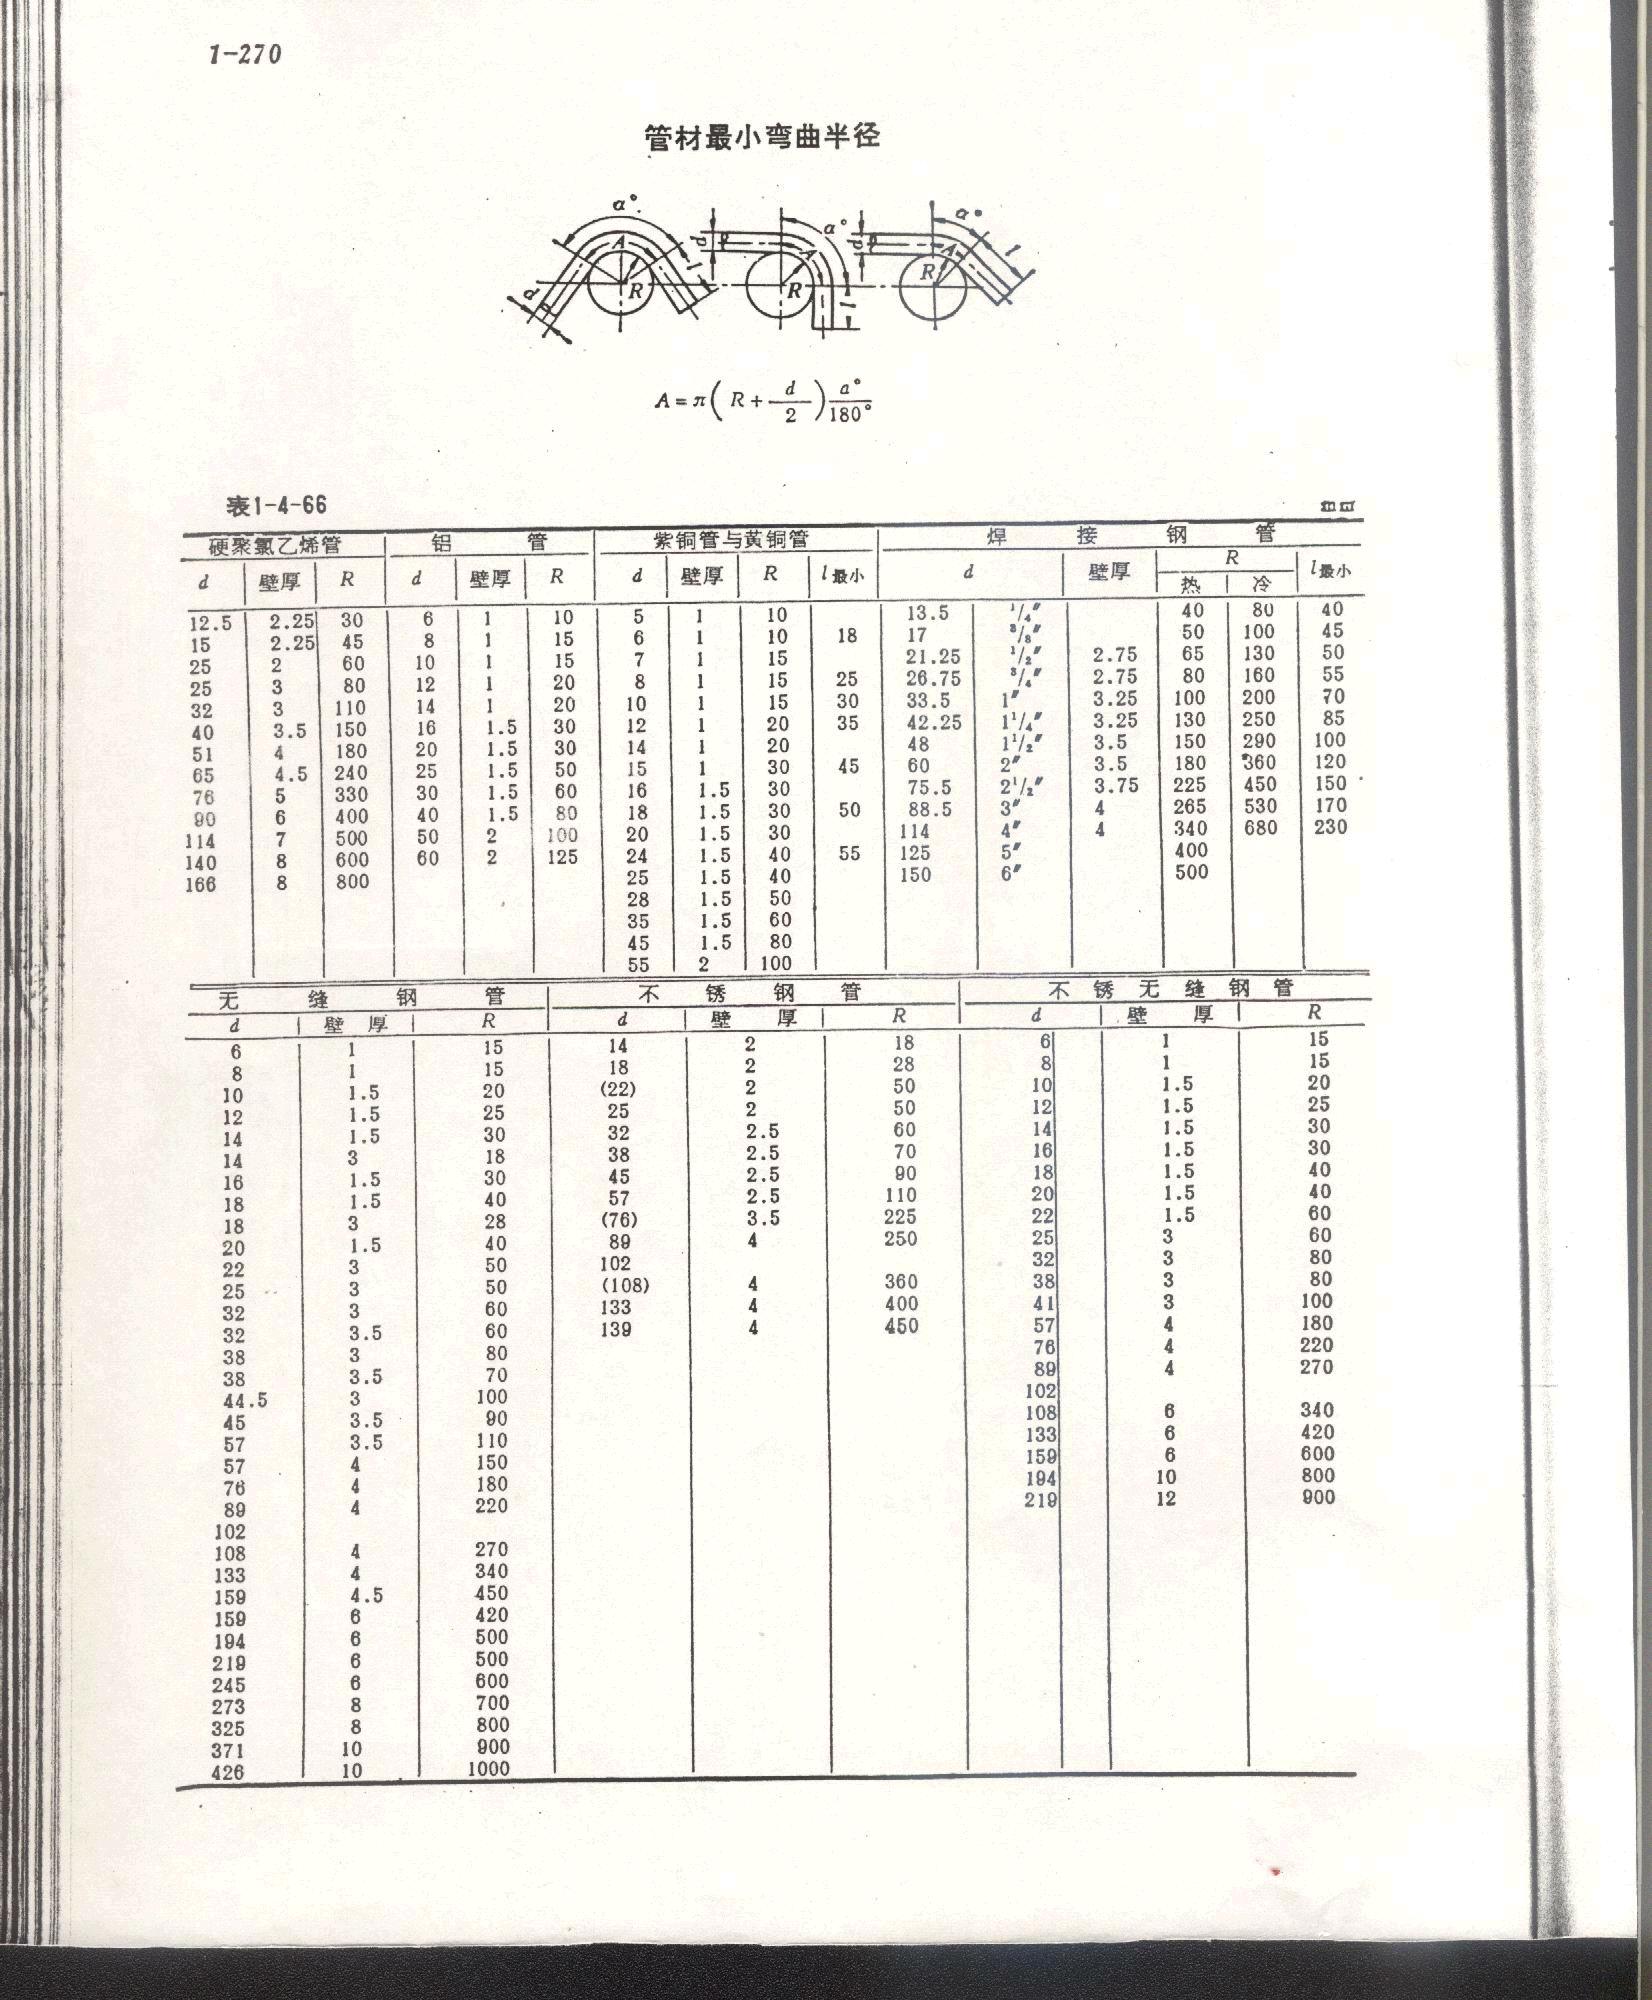 1-270
管材最小弯曲半径
α° A R l d α° A R l d α° A R l d
A=π(R+d/2)α°/180°
表1-4-66 mm
硬聚氯乙烯管 铝管 紫铜管与黄铜管 焊接钢管
d 壁厚 R d 壁厚 R d 壁厚 R l最小 d 壁厚 R l最小
热 冷
12.5 2.25 30 6 1 10 5 1 10 13.5 1/4″ 40 80 40
15 2.25 45 8 1 15 6 1 10 18 17 3/8″ 50 100 45
25 2 60 10 1 15 7 1 15 21.25 1/2″ 2.75 65 130 50
25 3 80 12 1 20 8 1 15 25 26.75 3/4″ 2.75 80 160 55
32 3 110 14 1 20 10 1 15 30 33.5 1″ 3.25 100 200 70
40 3.5 150 16 1.5 30 12 1 20 35 42.25 1 1/4″ 3.25 130 250 85
51 4 180 20 1.5 30 14 1 20 48 1 1/2″ 3.5 150 290 100
65 4.5 240 25 1.5 50 15 1 30 45 60 2″ 3.5 180 360 120
76 5 330 30 1.5 60 16 1.5 30 75.5 2 1/2″ 3.75 225 450 150
90 6 400 40 1.5 80 18 1.5 30 50 88.5 3″ 4 265 530 170
114 7 500 50 2 100 20 1.5 30 114 4″ 4 340 680 230
140 8 600 60 2 125 24 1.5 40 55 125 5″ 400
166 8 800 25 1.5 40 150 6″ 500
28 1.5 50
35 1.5 60
45 1.5 80
55 2 100
无缝钢管 不锈钢管 不锈无缝钢管
d 壁厚 R d 壁厚 R d 壁厚 R
6 1 15 14 2 18 6 1 15
8 1 15 18 2 28 8 1 15
10 1.5 20 (22) 2 50 10 1.5 20
12 1.5 25 25 2 50 12 1.5 25
14 1.5 30 32 2.5 60 14 1.5 30
14 3 18 38 2.5 70 16 1.5 30
16 1.5 30 45 2.5 90 18 1.5 40
18 1.5 40 57 2.5 110 20 1.5 40
18 3 28 (76) 3.5 225 22 1.5 60
20 1.5 40 89 4 250 25 3 60
22 3 50 102 32 3 80
25 3 50 (108) 4 360 38 3 80
32 3 60 133 4 400 41 3 100
32 3.5 60 139 4 450 57 4 180
38 3 80 76 4 220
38 3.5 70 89 4 270
44.5 3 100 102
45 3.5 90 108 6 340
57 3.5 110 133 6 420
57 4 150 159 6 600
76 4 180 194 10 800
89 4 220 219 12 900
102
108 4 270
133 4 340
159 4.5 450
159 6 420
194 6 500
219 6 500
245 6 600
273 8 700
325 8 800
371 10 900
426 10 1000